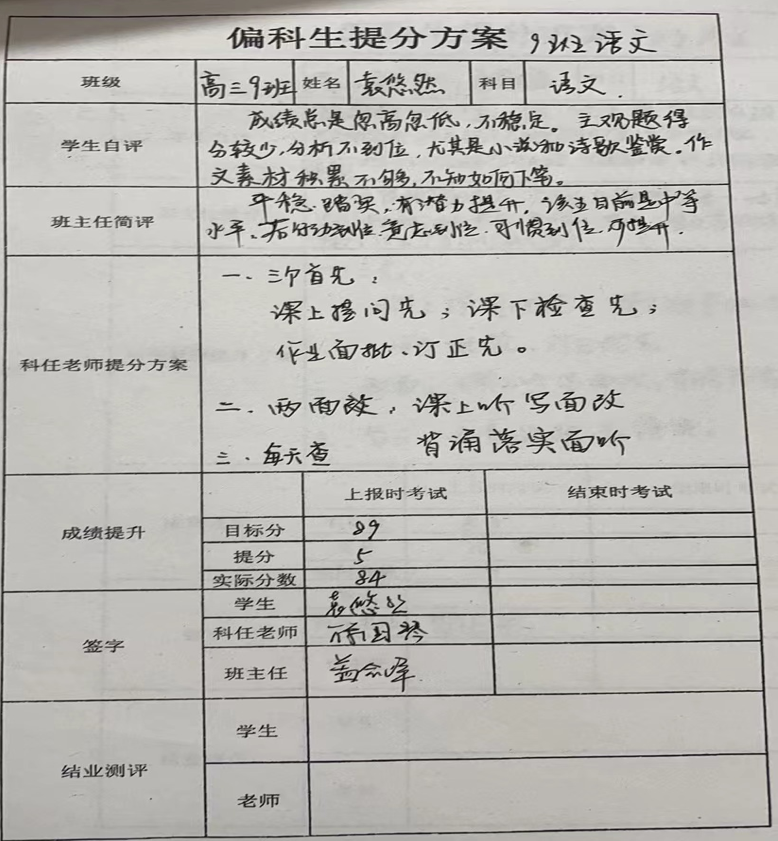 偏科生提分方案 9班语文
班级 高三9班 姓名 袁悠然 科目 语文.
学生自评
成绩总是忽高忽低,不稳定。主观题得
分较少,分析不到位,尤其是小说和诗歌鉴赏。作
文素材积累不够,不知如何下笔。
班主任简评
平稳.踏实,有潜力提升,该生目前是中等
水平、若行动到位 到位.习惯到位.可提升.
科任老师提分方案
一.三个首先:
课上提问先;课下检查先;
作业面批、订正先。
二.两面改,课上听写面改
背诵落实面听
三.每天查
成绩提升
上报时考试 结束时考试
目标分 89
提分 5
实际分数 84
签字
学生 袁悠然
科任老师 国琴
班主任
结业测评
学生
老师